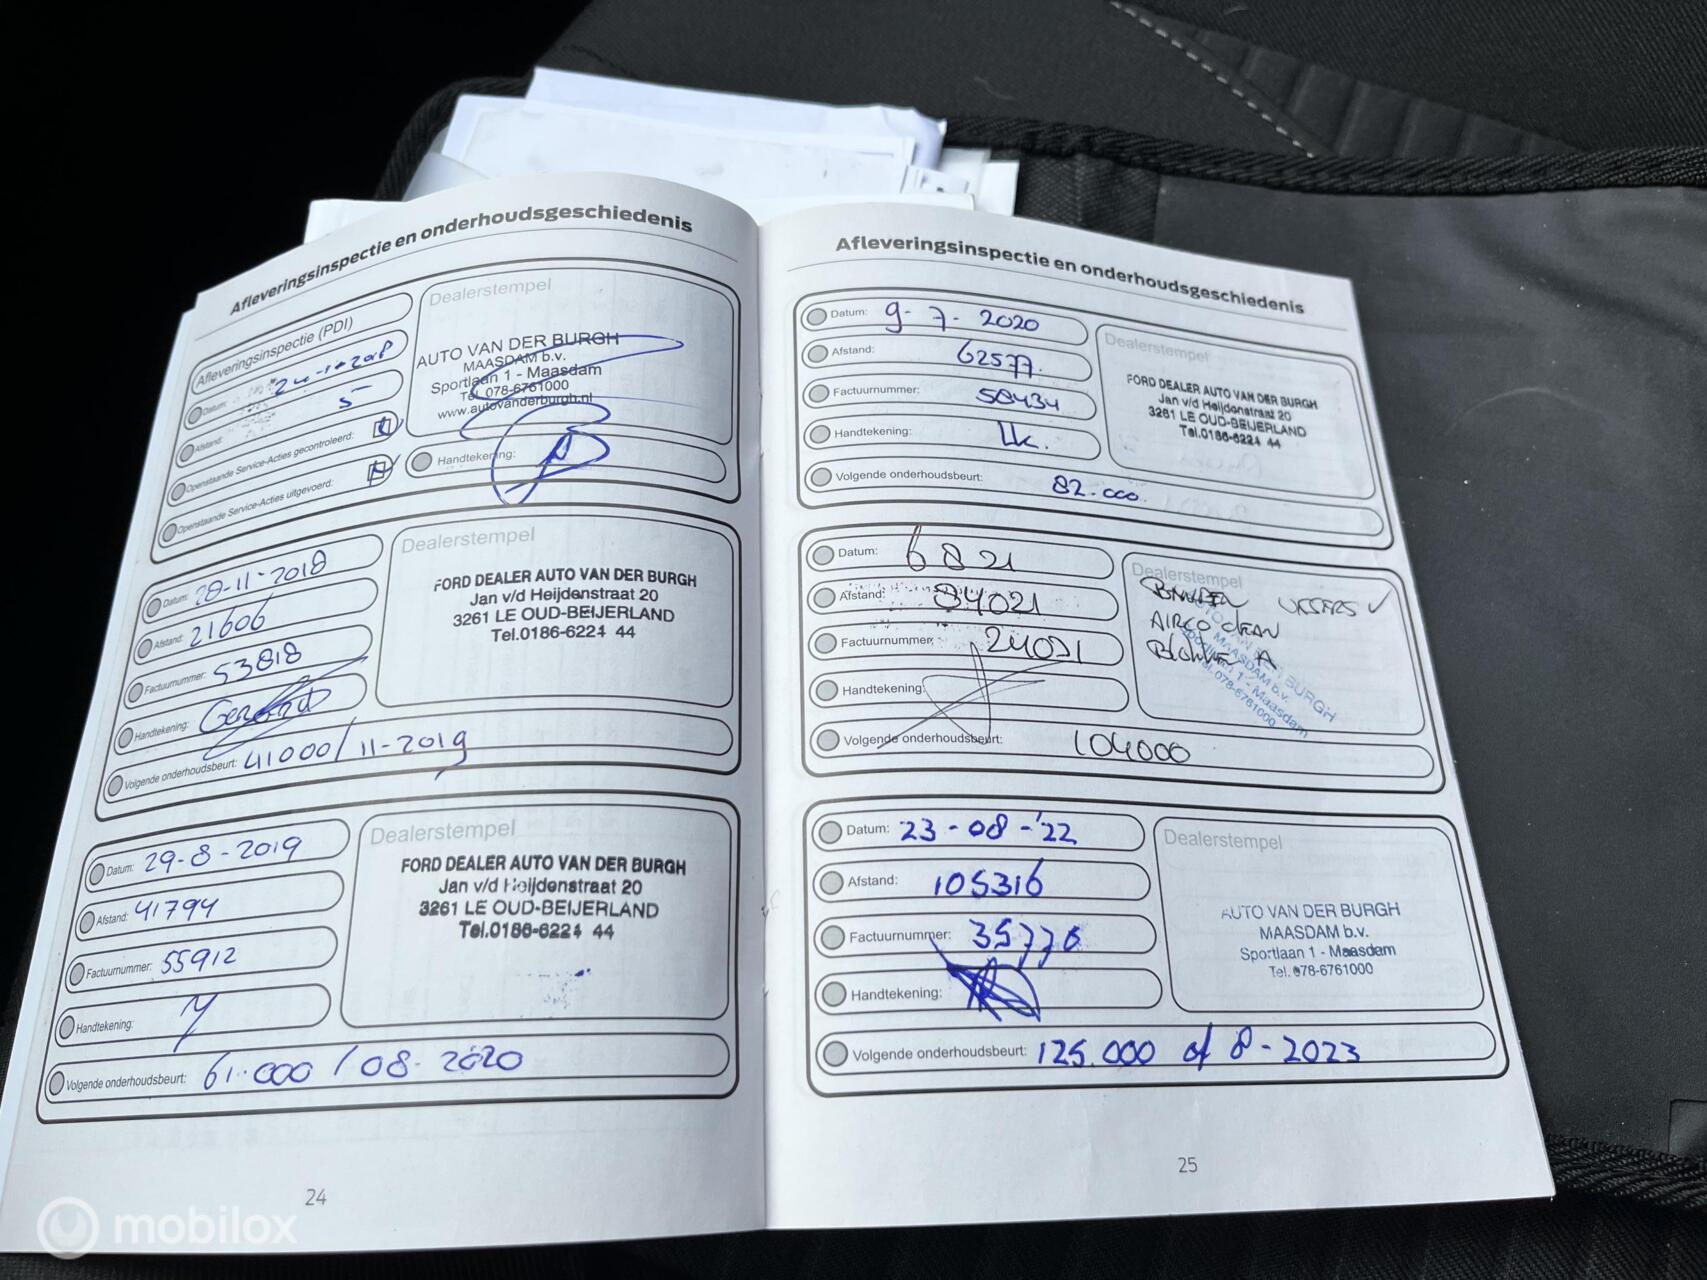 Afleveringsinspectie en onderhoudsgeschiedenis
Afleveringsinspectie (PDI)
Datum:
Afstand: 5
Openstaande Service-Acties gecontroleerd:
Openstaande Service-Acties uitgevoerd:
Dealerstempel
AUTO VAN DER BURGH
MAASDAM b.v.
Sportlaan 1 - Maasdam
Tel. 078-6761000
www.autovanderburgh.nl
Handtekening:
Datum: 28-11-2018
Afstand: 21606
Factuurnummer: 53818
Handtekening:
Volgende onderhoudsbeurt: 41000/11-2019
Dealerstempel
FORD DEALER AUTO VAN DER BURGH
Jan v/d Heijdenstraat 20
3261 LE OUD-BEIJERLAND
Tel.0186-6221 44
Datum: 29-8-2019
Afstand: 41794
Factuurnummer: 55912
Handtekening:
Volgende onderhoudsbeurt: 61.000 / 08-2020
Dealerstempel
FORD DEALER AUTO VAN DER BURGH
Jan v/d Heijdenstraat 20
3261 LE OUD-BEIJERLAND
Tel.0186-6221 44
24
Afleveringsinspectie en onderhoudsgeschiedenis
Datum: 9-7-2020
Afstand: 62577.
Factuurnummer: 58434
Handtekening:
Volgende onderhoudsbeurt: 82.000.
Dealerstempel
FORD DEALER AUTO VAN DER BURGH
Jan v/d Heijdenstraat 20
3261 LE OUD-BEIJERLAND
Tel.0186-6221 44
Datum: 6 8 21
Afstand: 84021
Factuurnummer: 24021
Handtekening:
Volgende onderhoudsbeurt: 104000
Dealerstempel
AIRCO CLEAN
MAASDAM b.v.
Sportlaan 1 - Maasdam
Tel. 078-6761000
Datum: 23-08-'22
Afstand: 105316
Factuurnummer: 35776
Handtekening:
Volgende onderhoudsbeurt: 125.000 of 8-2023
Dealerstempel
AUTO VAN DER BURGH
MAASDAM b.v.
Sportlaan 1 - Maasdam
Tel. 078-6761000
25
mobilox